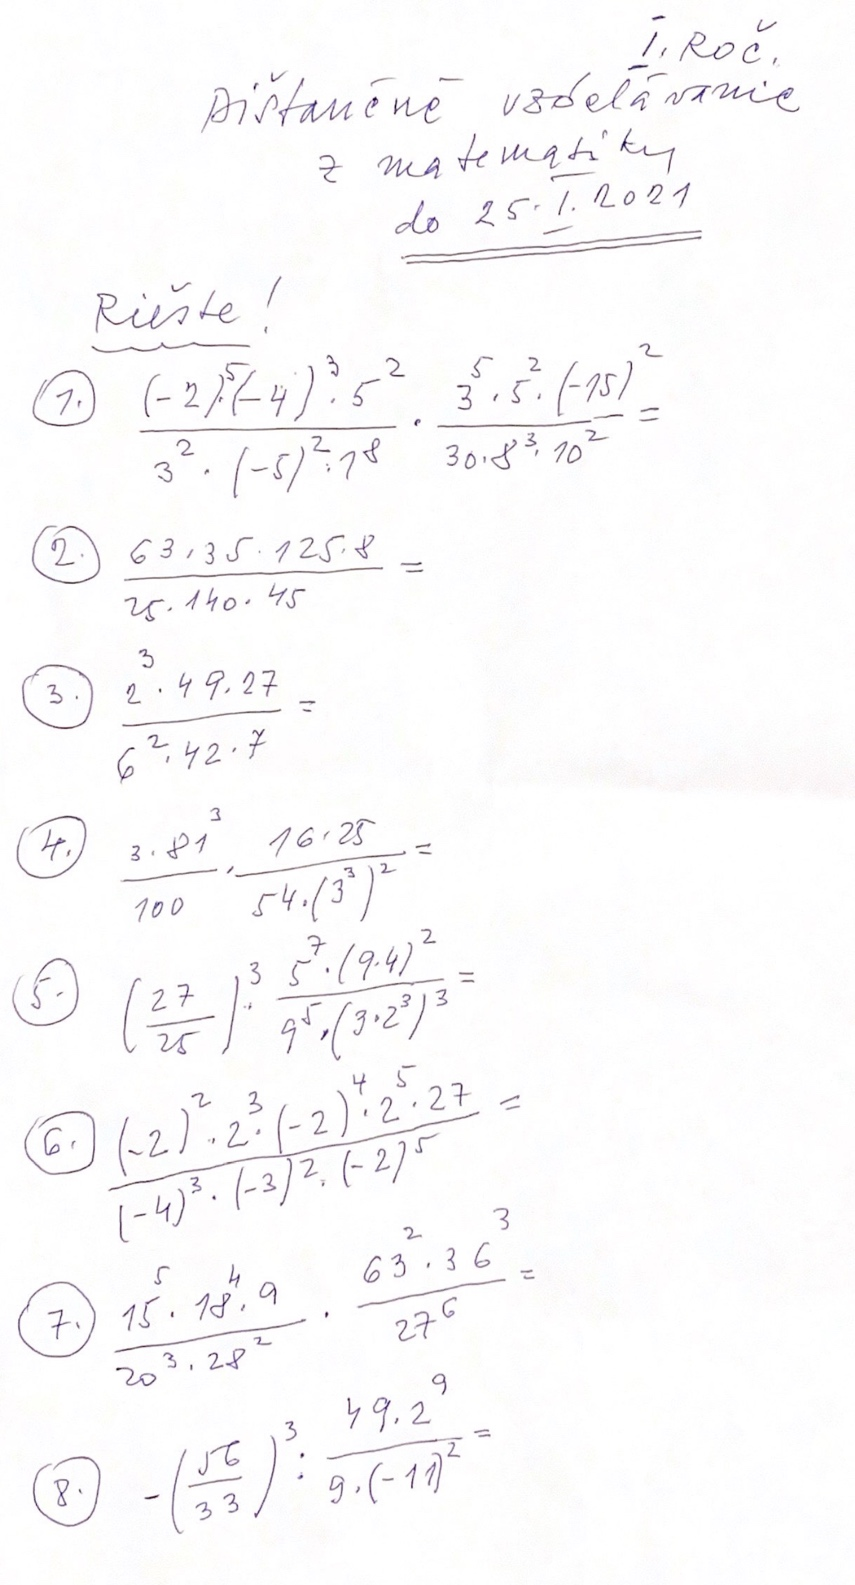 I. Roč.
Dištančné vzdelávanie
z matematiky
do 25. I. 2021
Riešte!
1. \frac{(-2)^5 \cdot (-4)^3 \cdot 5^2}{3^2 \cdot (-5)^2 \cdot 1^8} \cdot \frac{3^5 \cdot 5^2 \cdot (-15)^2}{30 \cdot 8^3 \cdot 10^2} =
2. \frac{63 \cdot 35 \cdot 125 \cdot 8}{25 \cdot 140 \cdot 45} =
3. \frac{2^3 \cdot 49 \cdot 27}{6^2 \cdot 42 \cdot 7} =
4. \frac{3 \cdot 81^3}{100} \cdot \frac{16 \cdot 25}{54 \cdot (3^3)^2} =
5. \left(\frac{27}{25}\right)^3 : \frac{5^7 \cdot (9 \cdot 4)^2}{9^5 \cdot (3 \cdot 2^3)^3} =
6. \frac{(-2)^2 \cdot 2^3 \cdot (-2)^4 \cdot 2^5 \cdot 27}{(-4)^3 \cdot (-3)^2 \cdot (-2)^5} =
7. \frac{15^5 \cdot 18^4 \cdot 9}{20^3 \cdot 28^2} \cdot \frac{63^2 \cdot 36^3}{27^6} =
8. -\left(\frac{56}{33}\right)^3 : \frac{49 \cdot 2^9}{9 \cdot (-11)^2} =